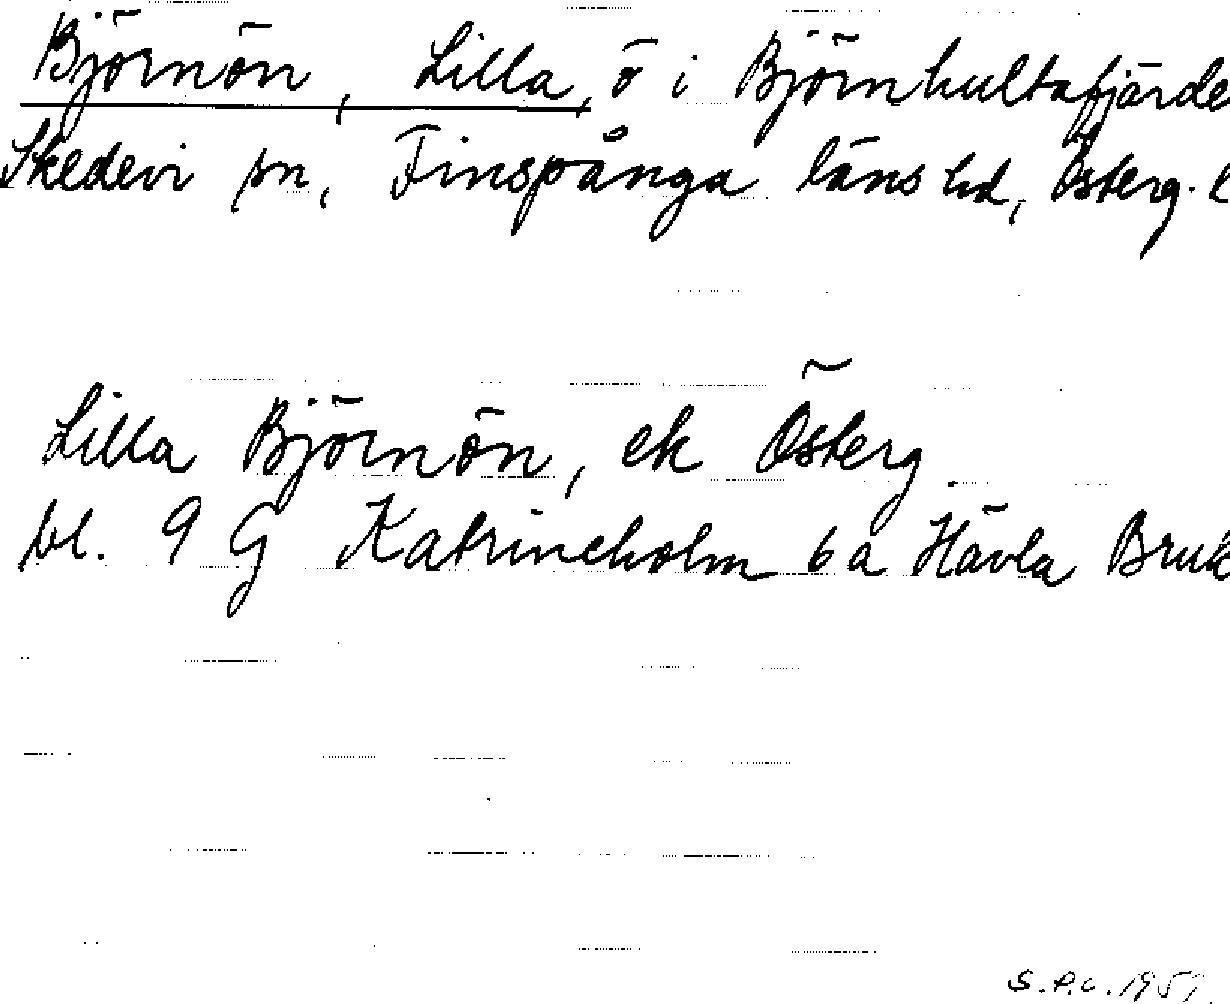 Björnön, Lilla, ö i Björnhultafjärde
Skedevi sn, Finspånga läns hd, Österg. l
Lilla Björnön, ek Österg
bl. 9 G Katrineholm 6 a Hävla Bruk
S.P.C. 1951.